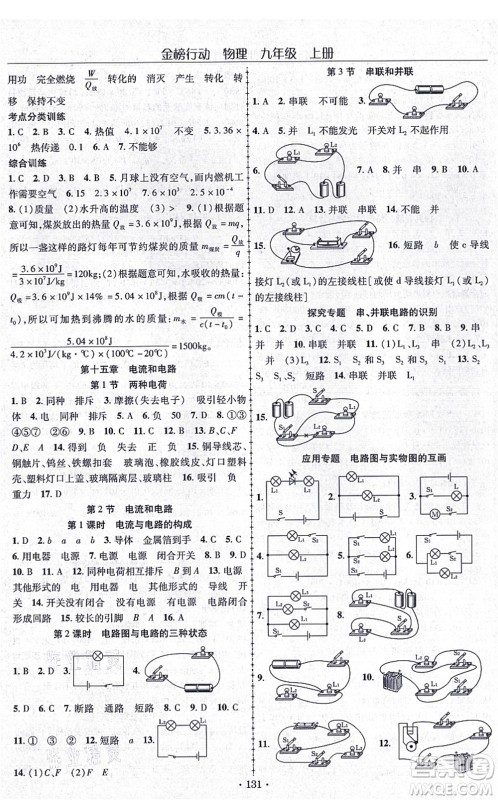 金榜行动 物理 九年级 上册
用功 完全燃烧 W/Q放 转化的 消灭 产生 转化 转
移 保持不变
考点分类训练
1. C 2. B 3. C 4. 热值 4.1×10⁷ 不变 5. 3.36×
10⁶ 热传递 0.1 6. A 7. 不能够
综合训练
1. C 2. C 3. D 4. B 5. 月球上没有空气,而内燃机工
作需要空气 6. 15.2 7. D
8. (1)质量 (2)水升高的温度 (3)C 9. (1)根据题
意可知,煤炭放出的热量 Q放=3.6×10⁹J,根据 Q放=mq,
所以一盏这样的路灯每年可节约煤炭的质量 m煤炭=Q放/q
=3.6×10⁹J/3×10⁷J/kg=120kg;(2)根据题意可知,水吸收的热量:
Q吸=Q放×η=3.6×10⁹J×1.4=5.04×10⁹J,根据 Q吸=cm(t-
t₀),可得加热到沸腾的水的质量:m水=Q吸/c(t-t₀)=
5.04×10⁸J/4.2×10³J/(kg·℃)×(100℃-20℃)=1500kg。
第十五章 电流和电路
第1节 两种电荷
1. B 2. 同种 排斥 3. 摩擦(失去电子) 吸引轻小
物体 4. C 5. D 6. A 7. 负 负 不变 8. D 9. ①③
④⑤⑦ ②⑥ 10. B 11. 同种 排斥 12. A
13. A 14. 得到 负 失去 正 负 15. 铜导线芯、
铜触片、钨丝、铁螺母和套 玻璃泡、橡胶残皮、灯口塑料
壳、电线塑料皮、玻璃隔离盖 16. D 17. 吸引 负
负 重力
第2节 电流和电路
第1课时 电流与电路的构成
1. D 2. b a a b 3. 导体 金属箔到手 4. C 5. C
6. 用电器 电源 电源 闭合开关 7. C 8. D 9. D
10. B 11. A 12. 同种电荷相互排斥 b a 13. 电源
其他形式的 电 用电器 电能 其他形式的 导线 开
关 14. 闭合开关 小灯泡发光 有电源 电路闭合
形成回路 15. 较长的引脚 b a a b
第2课时 电路图与电路的三种状态
1. A 2. D 3. 4.
5. D 6. D 7. 断路 通路 短路 8. C 9. C 10. B
11. ① ③ ② 12. 短路 a 13.
14. (1)C、F (2)F C
第3节 串联和并联
1. A 2. 串联 不可能 3. 4. C
5. A 6. 并 L₁ 不能发光 开关对 L₂ 不起作用
7. 8. 9. C 10. C
11. D 12. A 13. 并联 串联 14. 不能 并
15. 16. 短路 b 使c导线
接灯 L₂(L₁)的左接线柱[或使d导线接灯 L₁(L₂)
的左接线柱]
探究专题 串、并联电路的识别
应用专题 电路图与实物图的互画
1. 2. 3.
4. 5. 6.
7. 8.
9. 10.
11. 12.
· 131 ·
答案圈
MXQE.COM